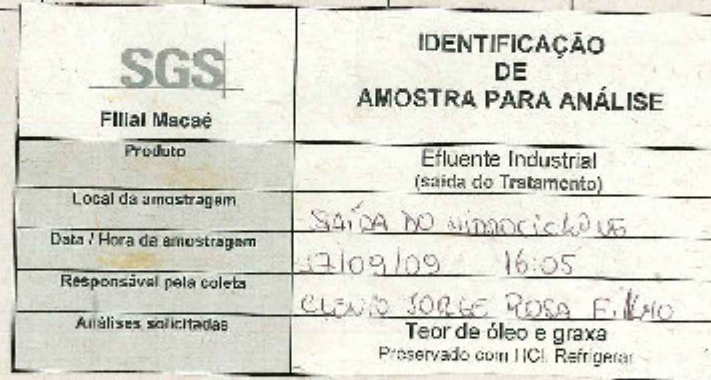 SGS
Filial Macaé
IDENTIFICAÇÃO
DE
AMOSTRA PARA ANÁLISE
Produto
Efluente Industrial
(saída do Tratamento)
Local da amostragem
SAÍDA DO HIDROCICLONE
Data / Hora da amostragem
17/09/09 16:05
Responsável pela coleta
JORGE ROSA FILHO
Análises solicitadas
Teor de óleo e graxa
Preservado com HCl. Refrigerar